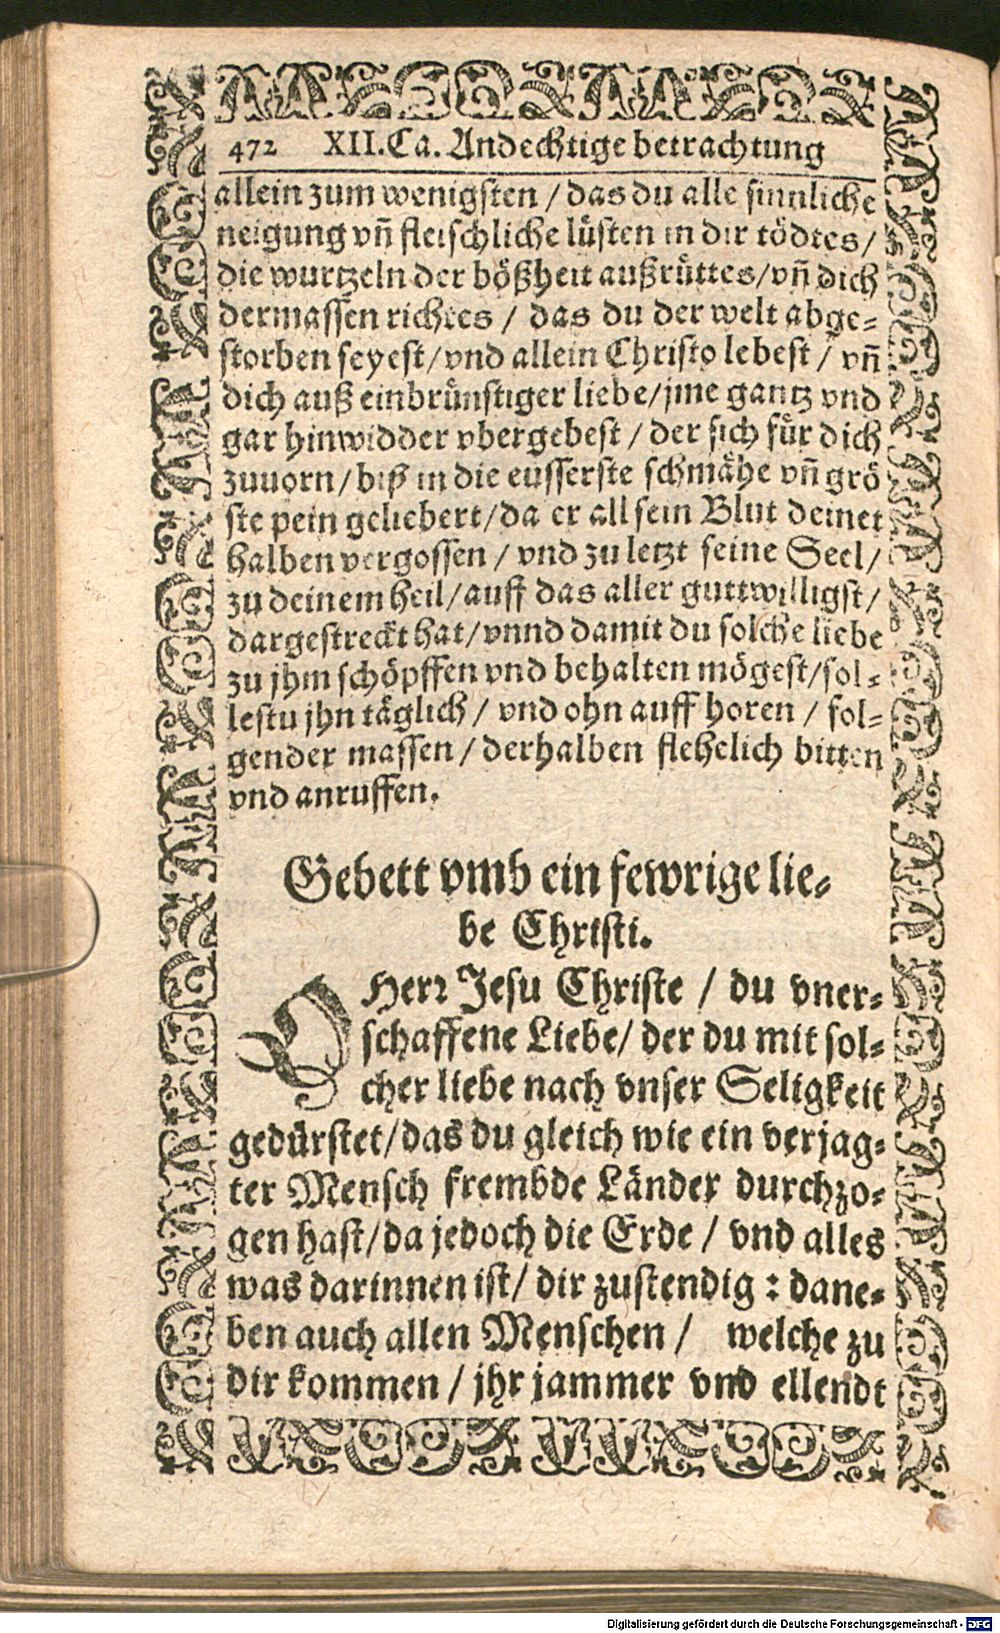 472 XII. Ca. Andechtige betrachtung
allein zum wenigsten / das du alle sinnliche
neigung vñ fleischliche lüsten in dir tödtes /
die wurtzeln der bößheit außrüttes / vñ dich
dermassen richtes / das du der welt abge-
storben seyest / vnd allein Christo lebest / vñ
dich auß einbrünstiger liebe / jme gantz vnd
gar hinwidder vbergebest / der sich für dich
zuuorn / biß in die eusserste schmähe vñ grö
ste pein geliebert / da er all sein Blut deinet
halben vergossen / vnd zu letzt seine Seel /
zu deinem heil / auff das aller guttwilligst /
dargestreckt hat / vnnd damit du solche liebe
zu jhm schöpffen vnd behalten mögest / sol-
lestu jhn täglich / vnd ohn auff horen / fol-
gender massen / derhalben flehelich bitten
vnd anruffen.
Gebett vmb ein fewrige lie-
be Christi.
O Herr Jesu Christe / du vner-
schaffene Liebe / der du mit sol-
cher liebe nach vnser Seligkeit
gedürstet / das du gleich wie ein verjag-
ter Mensch frembde Länder durchzo-
gen hast / da jedoch die Erde / vnd alles
was darinnen ist / dir zustendig : dane-
ben auch allen Menschen / welche zu
dir kommen / jhr jammer vnd ellendt
Digitalisierung gefördert durch die Deutsche Forschungsgemeinschaft - DFG